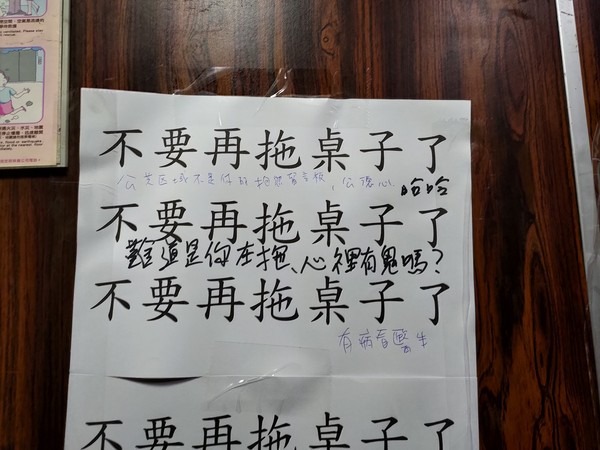 不要再拖桌子了
公共区域不是你的抱怨留言板，公德心 哈哈
不要再拖桌子了
難道是你在拖、心裡有鬼嗎？
不要再拖桌子了
有病看醫生
不要再拖桌子了